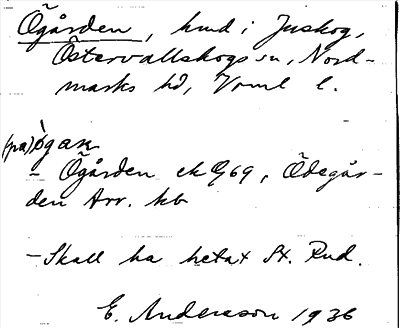 Ögården, hmd i Juskog,
Östervallskogs sn, Nord-
marks hd, Vrml l.
(på) ø̀gaɳ
– Ögården ek Ø69, Ödegår-
den Arr. kb
– Skall ha hetat St. Rud.
E. Andersson 1936